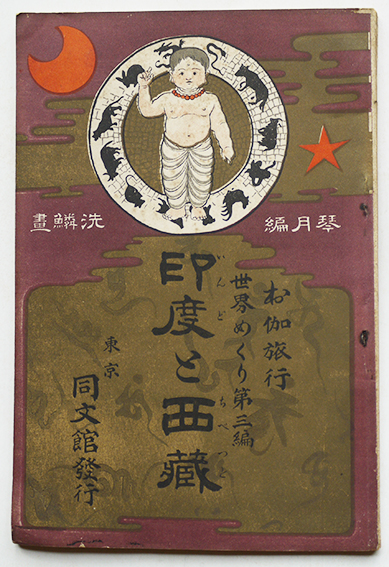 琴月編
洗鱗畫
お伽旅行
世界めぐり第三編
印度と西藏
いんど
ちべつと
東京
同文館發行